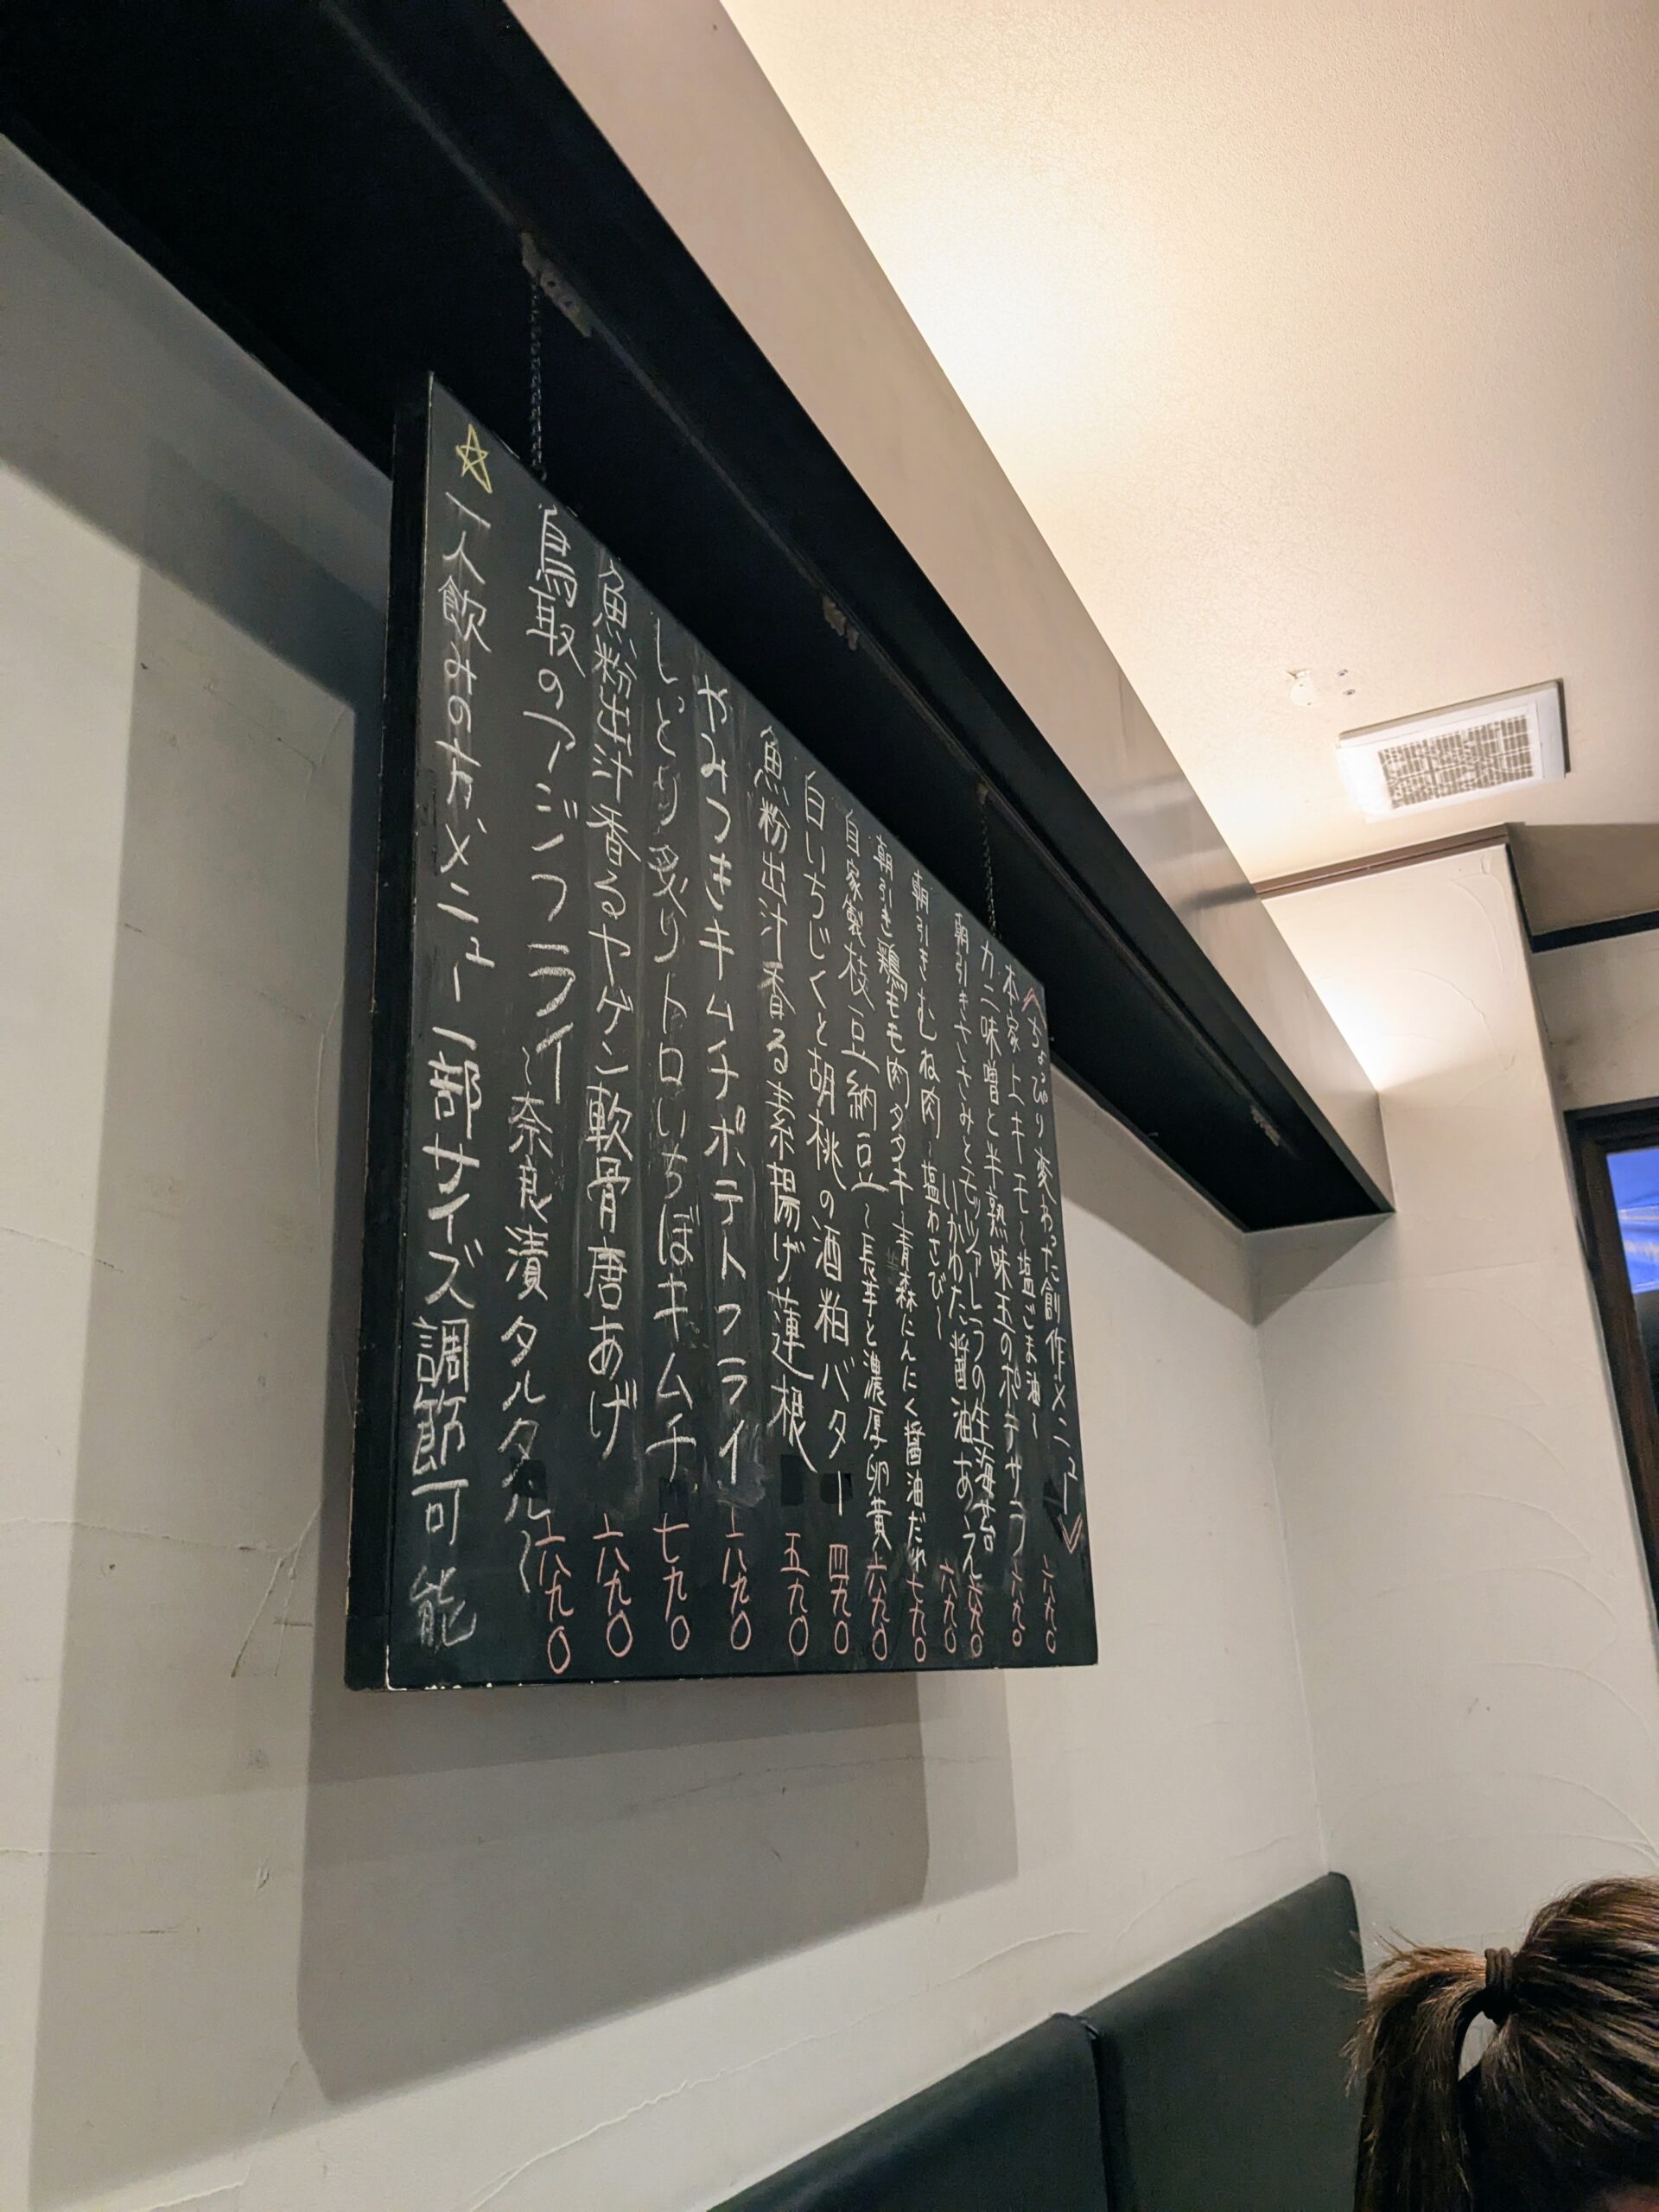 〈ちょっぴり変わった創作メニュー〉
本家 上キモ〜塩ごま油〜 六九〇
カニ味噌と半熟味玉のポテサラ 六九〇
朝引きささみとモッツァレラの生海苔 六九〇
いかわた醤油あつえ
朝引きむね肉〜塩わさび〜 六九〇
朝引き鶏もも肉タタキ〜青森にんにく醤油だれ 七九〇
自家製枝豆納豆〜長芋と濃厚卵黄 六九〇
白いちじくと胡桃の酒粕バター 四九〇
魚粉出汁香る素揚げ蓮根 五九〇
やみつきキムチポテトフライ 六九〇
しっとり炙りトロいちぼキムチ 七九〇
魚粉出汁香るヤゲン軟骨唐あげ 六九〇
鳥取のアジフライ〜奈良漬タルタル〜 六九〇
☆一人飲みの方メニュー一部サイズ調節可能